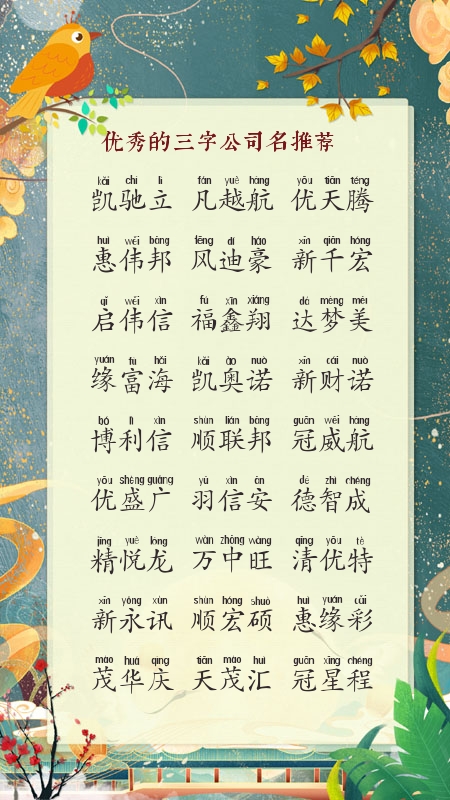 优秀的三字公司名推荐
kǎi chí lì fán yuè háng yōu tiān téng
凯驰立 凡越航 优天腾
huì wěi bāng fēng dí háo xīn qiān hóng
惠伟邦 风迪豪 新千宏
qǐ wěi xìn fú xīn xiáng dá mèng měi
启伟信 福鑫翔 达梦美
yuán fù hǎi kǎi ào nuò xīn cái nuò
缘富海 凯奥诺 新财诺
bó lì xìn shùn lián bāng guān wēi háng
博利信 顺联邦 冠威航
yōu shèng guǎng yǔ xìn ān dé zhì chéng
优盛广 羽信安 德智成
jīng yuè lóng wàn zhōng wàng qīng yōu tè
精悦龙 万中旺 清优特
xīn yǒng xùn shùn hóng shuò huì yuán cǎi
新永讯 顺宏硕 惠缘彩
mào huá qìng tiān mào huì guān xīng chéng
茂华庆 天茂汇 冠星程